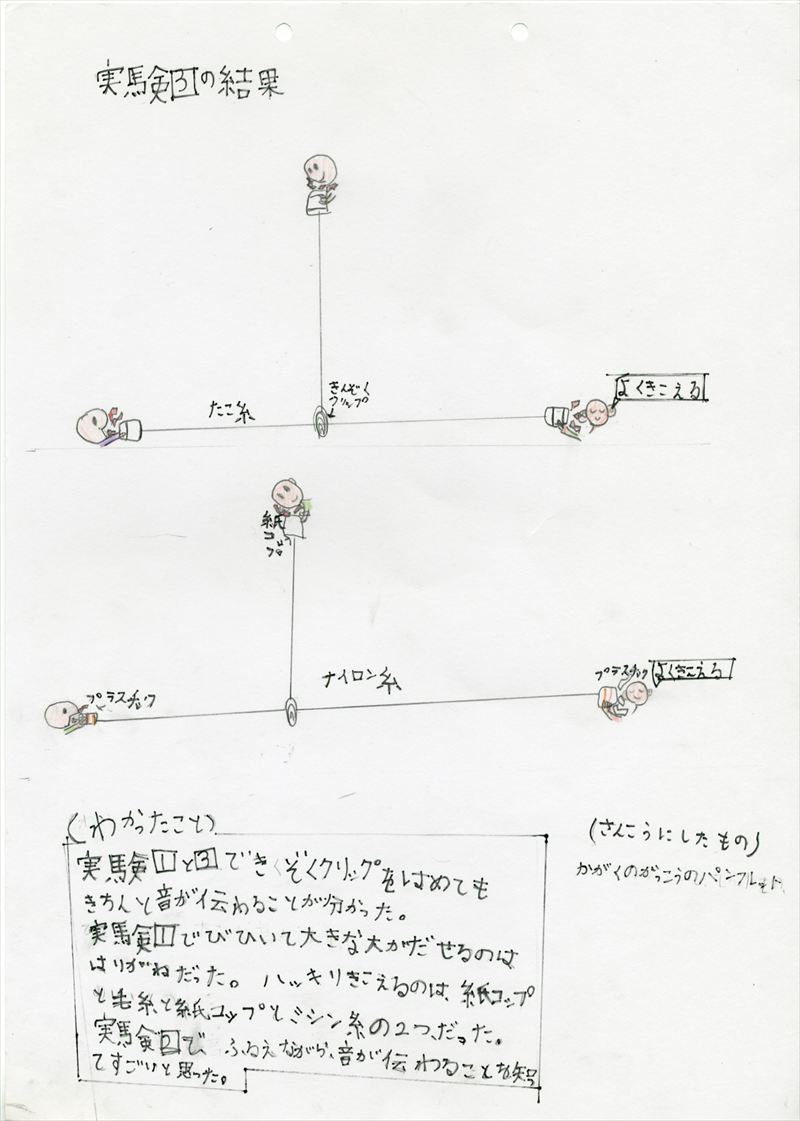 実験3の結果
きんぞく
クリップ
たこ糸
よくきこえる
紙
コップ
ナイロン糸
プラスチック
よくきこえる
プラスチック
(わかったこと)
実験1と3できぞくクリップをはめても
きちんと音が伝わることが分かった。
実験1でびひいて大きな大がだせるのは
はりがねだった。ハッキリきこえるのは、紙コップ
と毛糸と紙コップとミシン糸の2つ、だった。
実験2で ふるえながら、音が伝わることを知っ
てすごいと思った。
(さんこうにしたもの)
かがくのがっこうのパンフレット